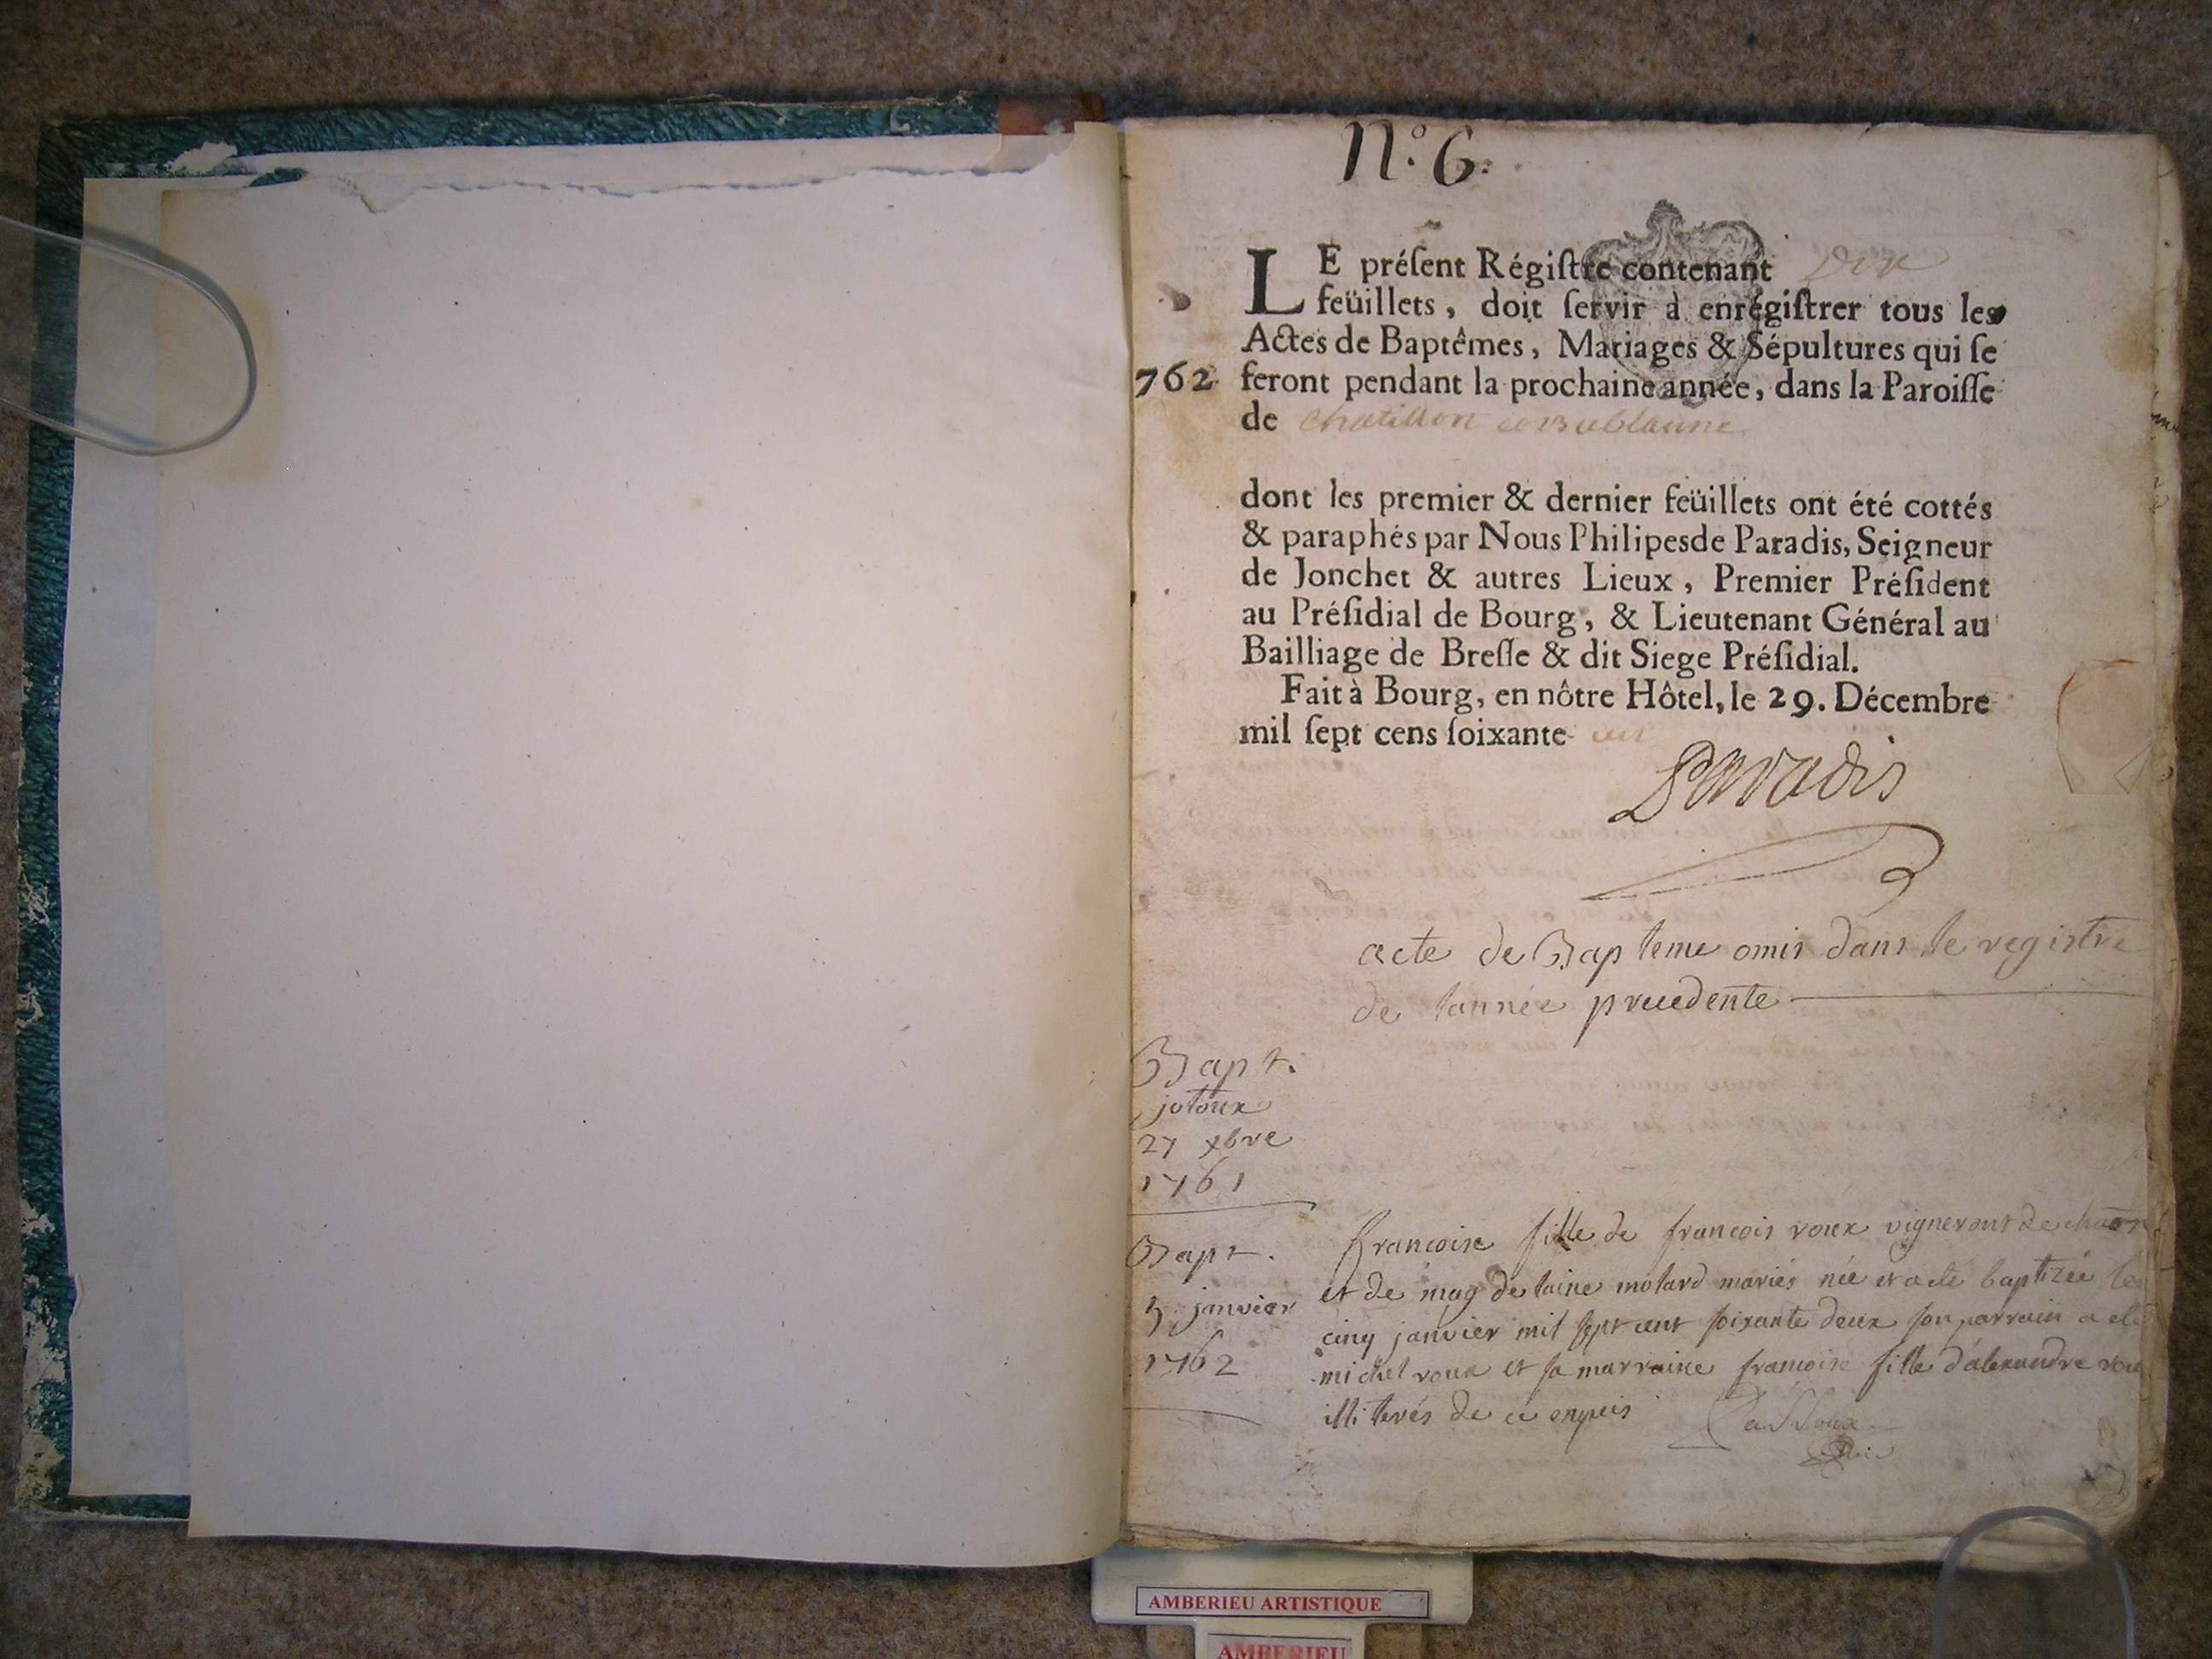 N.º 6.
LE préſent Régiſtre contenant Dix
feüillets, doit ſervir à enrégiſtrer tous les
Actes de Baptêmes, Mariages & Sépultures qui ſe
762 feront pendant la prochaine année, dans la Paroiſſe
de chatillon
dont les premier & dernier feüillets ont été cottés
& paraphés par Nous Philipesde Paradis, Seigneur
de Jonchet & autres Lieux, Premier Préſident
au Préſidial de Bourg, & Lieutenant Général au
Bailliage de Breſſe & dit Siege Préſidial.
Fait à Bourg, en nôtre Hôtel, le 29. Décembre
mil ſept cens ſoixante un
Paradis
acte de Bapteme omis dans le registre
de lannée precedente
Bapt.
27 xbre
1761
Bapt.
5 janvier
1762
francoise fille de francois roux vigneront de
et de magdelaine molard mariés née et a eté baptizée le
cinq janvier mil sept cent soixante deux son parrain a eté
michel roux et sa marraine francoise fille dálexandre roux
illiterés de ce enquis
AMBERIEU ARTISTIQUE
AMBERIEU